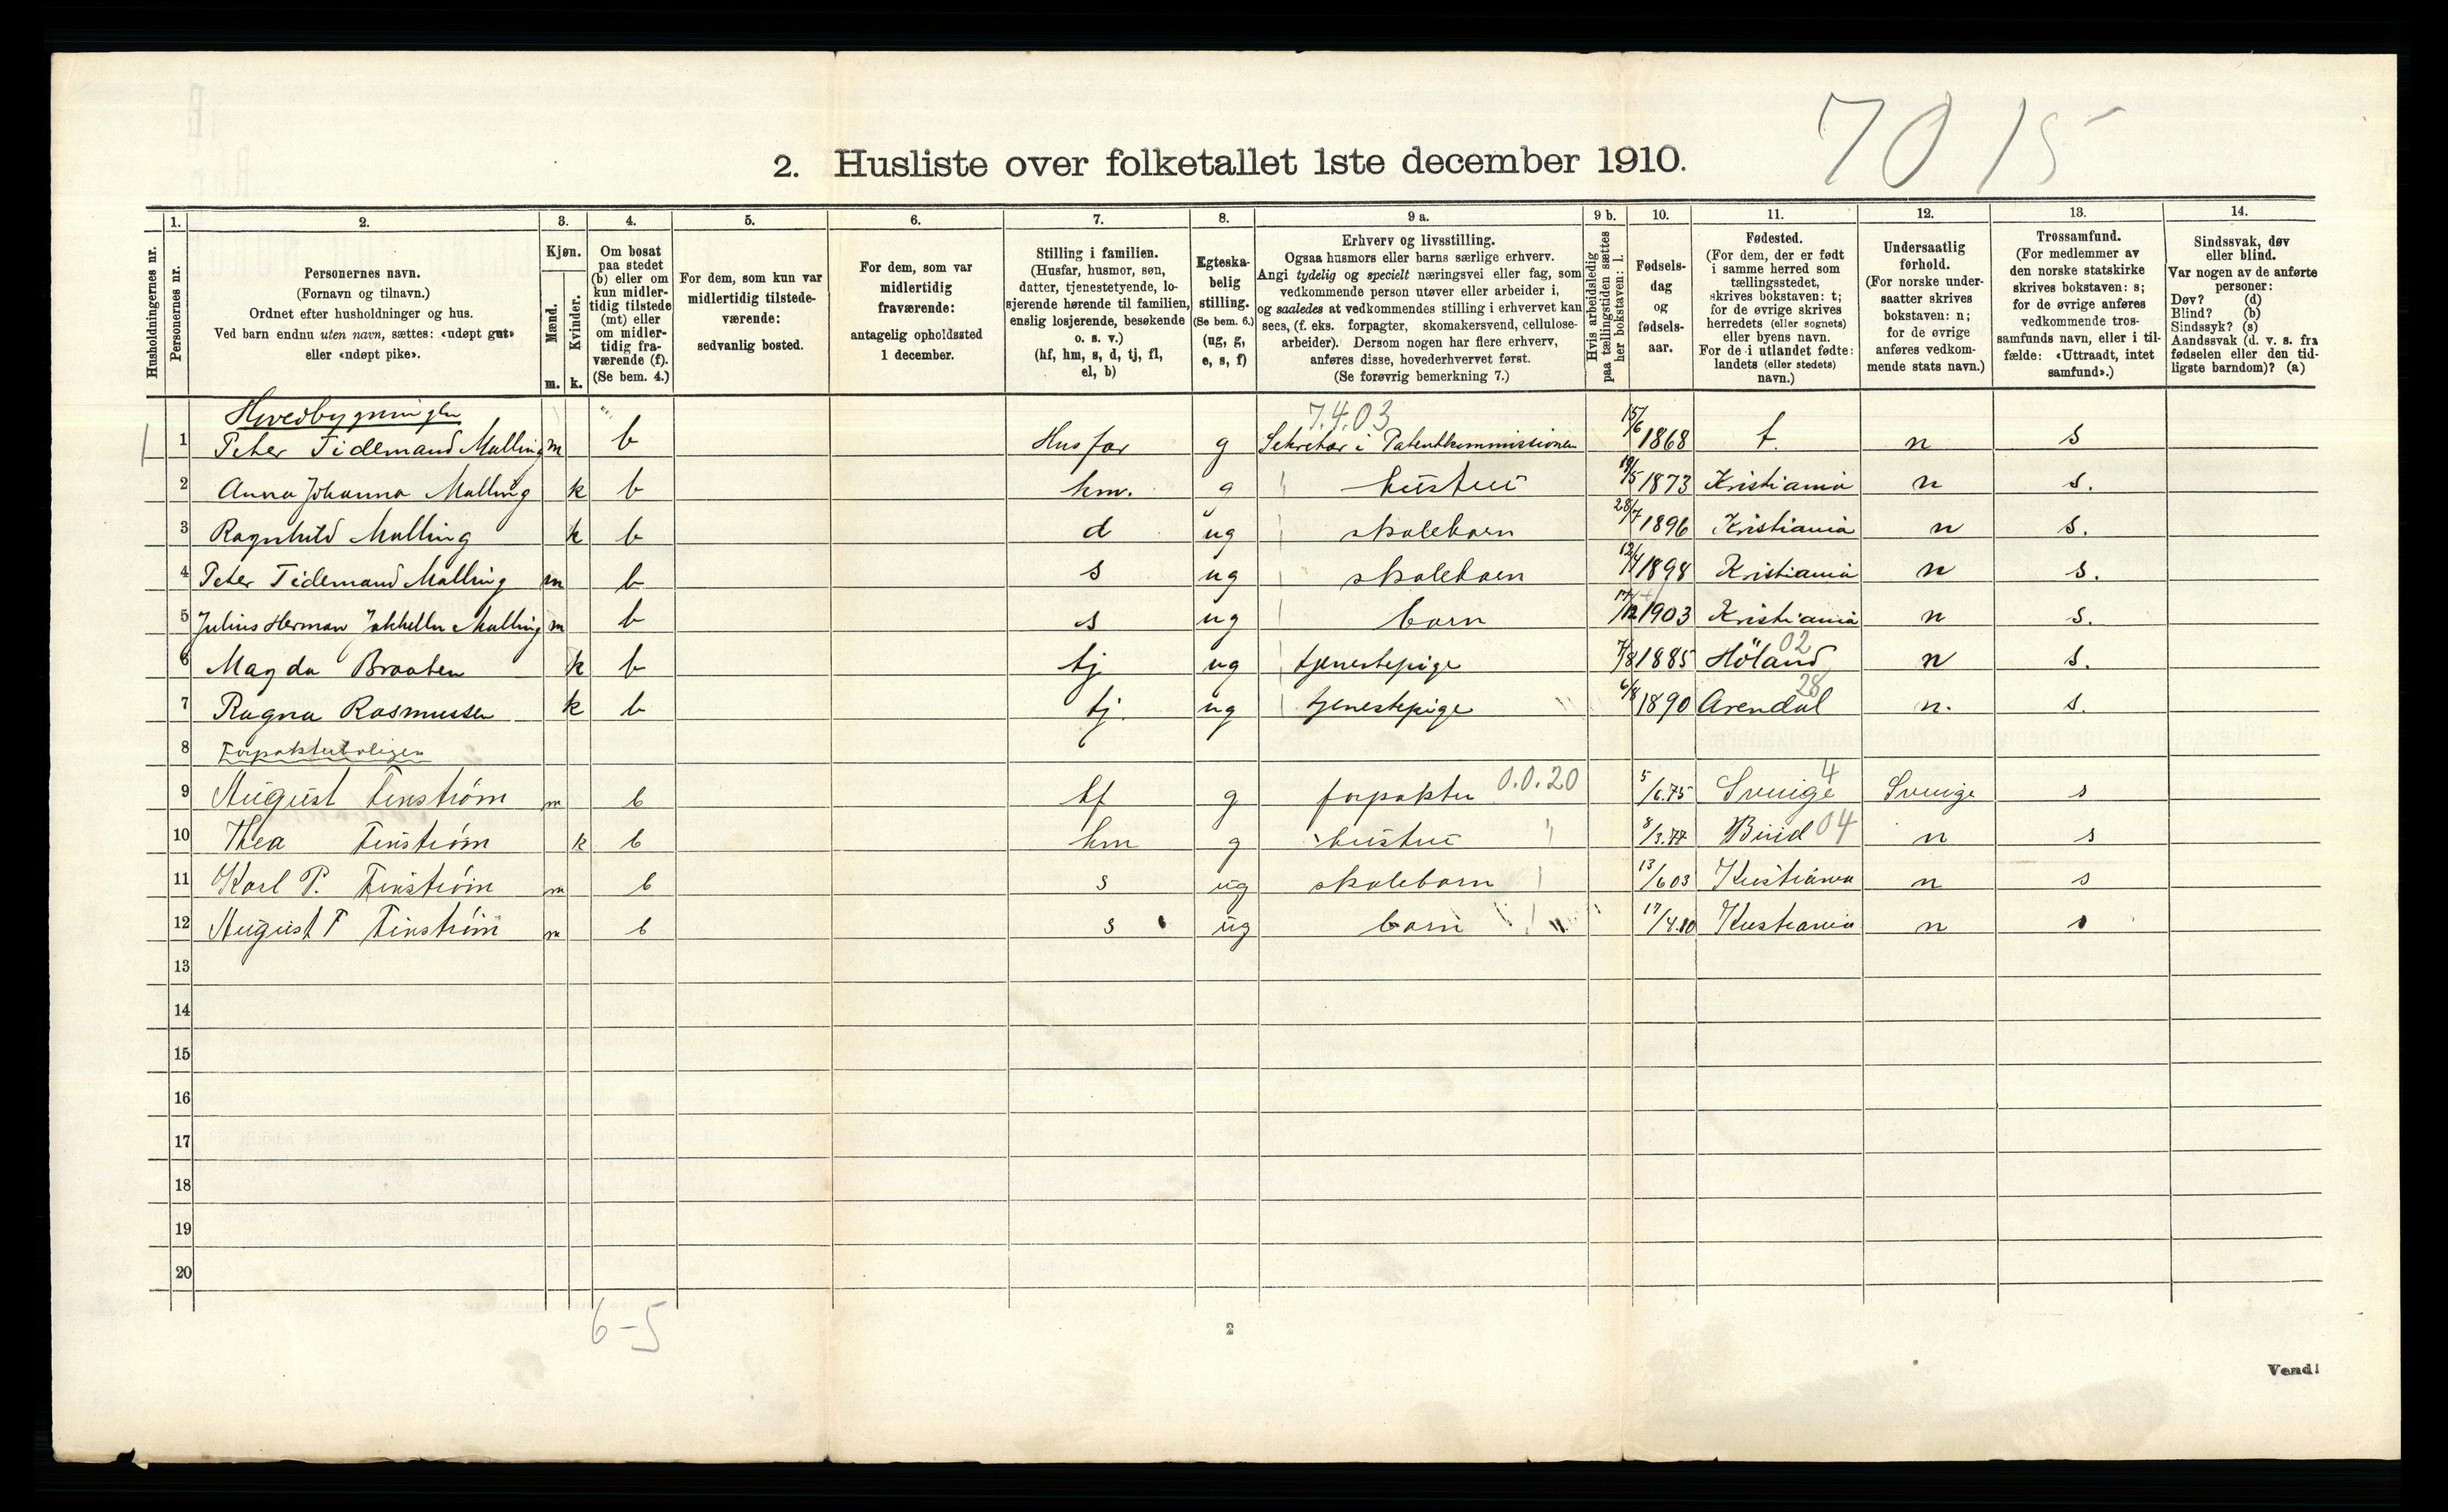 70 15
2. Husliste over folketallet 1ste december 1910.
Husholdningernes nr.
1.
Personernes nr.
2.
Personernes navn.
(Fornavn og tilnavn.)
Ordnet efter husholdninger og hus.
Ved barn endnu uten navn, sættes: «udøpt gut»
eller «udøpt pike».
3.
Kjøn.
Mænd.
Kvinder.
m. k.
4.
Om bosat
paa stedet
(b) eller om
kun midler-
tidig tilstede
(mt) eller
om midler-
tidig fra-
værende (f).
(Se bem. 4.)
5.
For dem, som kun var
midlertidig tilstede-
værende:
sedvanlig bosted.
6.
For dem, som var
midlertidig
fraværende:
antagelig opholdssted
1 december.
7.
Stilling i familien.
(Husfar, husmor, søn,
datter, tjenestetyende, lo-
sjerende hørende til familien,
enslig losjerende, besøkende
o. s. v.)
(hf, hm, s, d, tj, fl,
el, b)
8.
Egteska-
belig
stilling.
(Se bem. 6.)
(ug, g,
e, s, f)
9 a.
Erhverv og livsstilling.
Ogsaa husmors eller barns særlige erhverv.
Angi tydelig og specielt næringsvei eller fag, som
vedkommende person utøver eller arbeider i,
og saaledes at vedkommendes stilling i erhvervet kan
sees, (f. eks. forpagter, skomakersvend, cellulose-
arbeider). Dersom nogen har flere erhverv,
anføres disse, hovederhvervet først.
(Se forøvrig bemerkning 7.)
9 b.
Hvis arbeidsledig
paa tællingstiden sættes
her bokstaven: l.
10.
Fødsels-
dag
og
fødsels-
aar.
11.
Fødested.
(For dem, der er født
i samme herred som
tællingsstedet,
skrives bokstaven: t;
for de øvrige skrives
herredets (eller sognets)
eller byens navn.
For de i utlandet fødte:
landets (eller stedets)
navn.)
12.
Undersaatlig
forhold.
(For norske under-
saatter skrives
bokstaven: n;
for de øvrige
anføres vedkom-
mende stats navn.)
13.
Trossamfund.
(For medlemmer av
den norske statskirke
skrives bokstaven: s;
for de øvrige anføres
vedkommende tros-
samfunds navn, eller i til-
fælde: «Uttraadt, intet
samfund».)
14.
Sindssvak, døv
eller blind.
Var nogen av de anførte
personer:
Døv? (d)
Blind? (b)
Sindssyk? (s)
Aandssvak (d. v. s. fra
fødselen eller den tid-
ligste barndom)? (a)
Hovedbygningen
7.4.03
1 1 Peter Tidemand Malling m b Husfar g Sekretær i Patentkommissionen 15/6 1868 t. n s
2 Anna Johanna Malling k b hm. g hustru 19/5 1873 Kristiania n s.
3 Ragnhild Malling k b d ug skolebarn 28/7 1896 Kristiania n s.
4 Peter Tidemand Malling m b s ug skolebarn 12/4 1898 Kristiania n s.
5 Julius Herman Malling m b s ug barn /12 1903 Kristiania n s.
6 Magda Braaten k b tj ug tjenestepige 7/8 1885 Höland 02 n s.
7 Ragna Rasmussen k b tj. ug tjenestepige 6/8 1890 Arendal 28 n. s.
8 Forpakterboligen
9 August Finstrøm m b hf g forpakter 0.0.20 5/6.75 Sverige 4 Sverige s
10 Thea Finstrøm k b hm g hustru 8/3.77 Biri 04 n s
11 Karl P. Finstrøm m b s ug skolebarn 13/6 03 Kristiania n s
12 August F Finstrøm m b s ug barn 17/4.10 Kristiania n s
13
14
15
16
17
18
19
20
6-5
2
Vend!